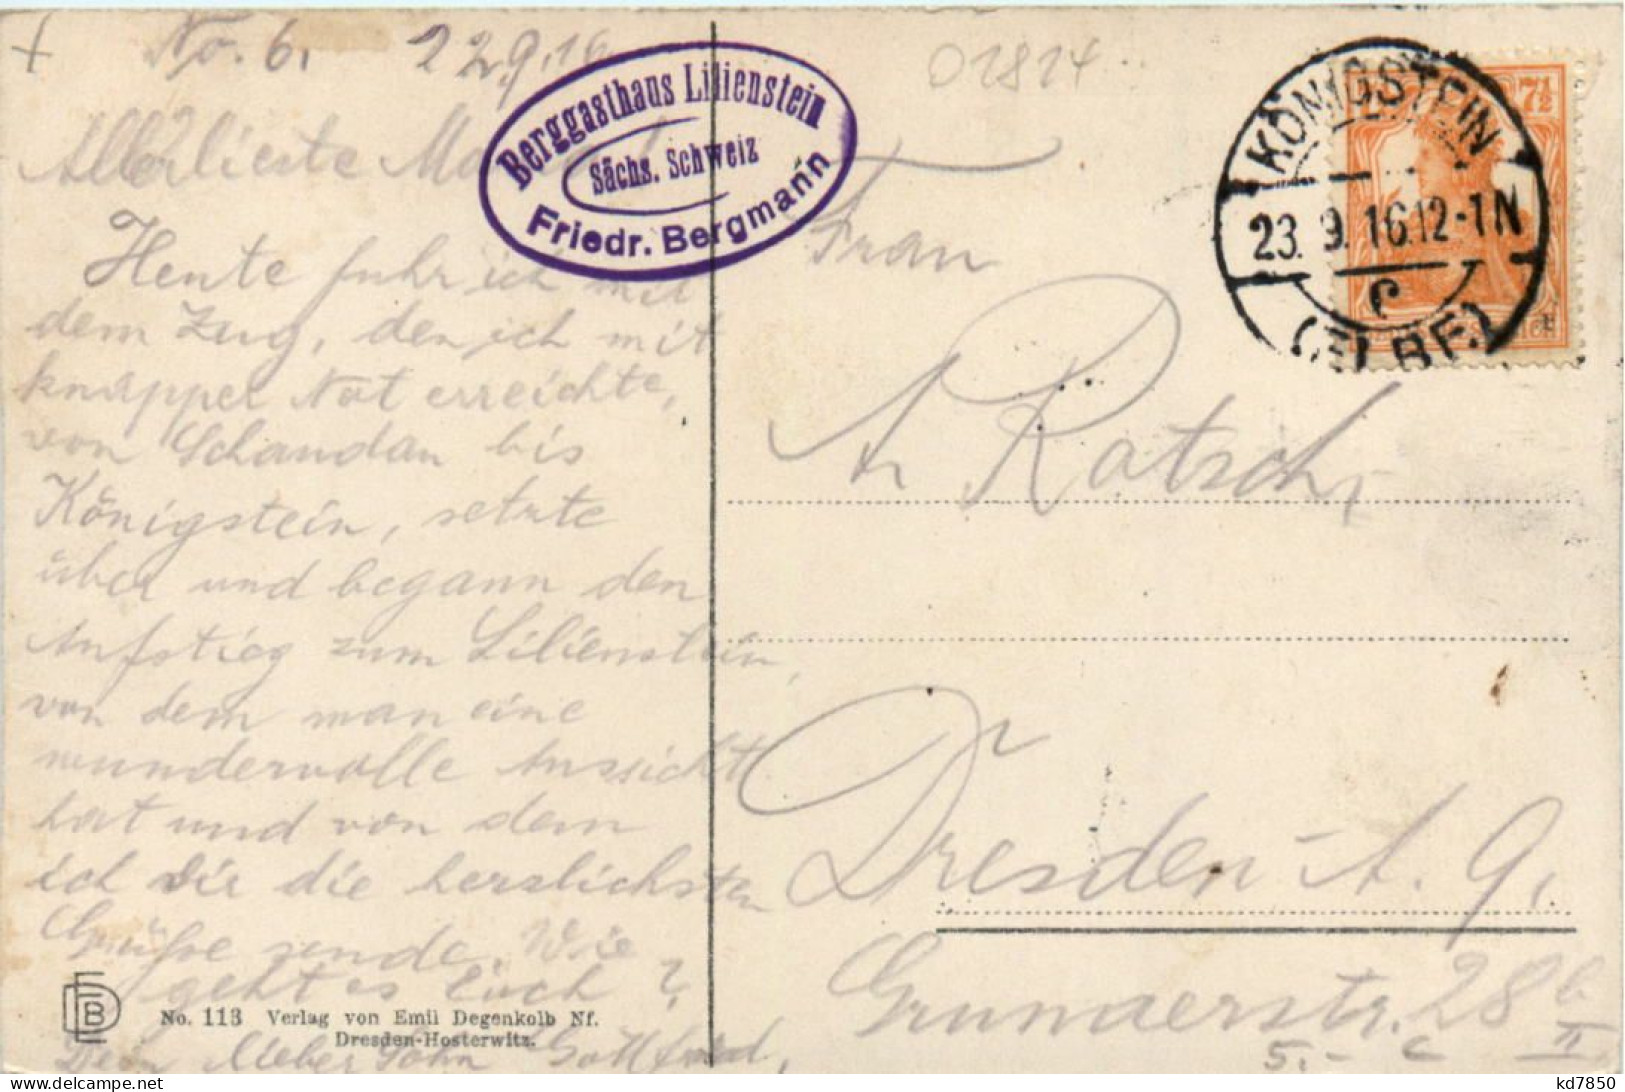 No. 6. 22.9.16
01814
Allerliebste
Heute fuhr ich mit
dem Zug, den ich mit
knapper Not erreichte,
von Schandau bis
Königstein, setzte
über und begann den
Aufstieg zum Lilienstein,
von dem man eine
wundervolle Aussicht
hat und von dem
ich Dir die herzlichsten
Grüße sende. Wie
geht es Euch?
Dein lieber Sohn Gottfried,
Berggasthaus Lilienstein
Sächs. Schweiz
Friedr. Bergmann
KÖNIGSTEIN
23. 9. 16. 12-1 N
c
(ELBE)
7½
Frau
A. Ratsch,
Dresden-A. 9,
Grunaerstr. 28 b
II
5.- c
EDB
No. 113 Verlag von Emil Degenkolb Nf.
Dresden-Hosterwitz.
kd7850